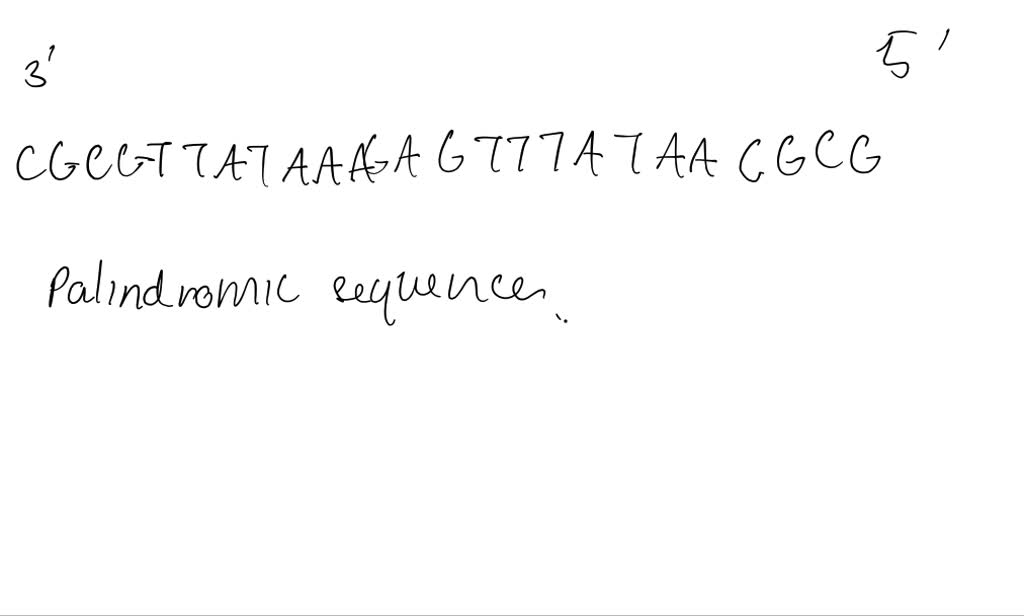 3' 5'
CGCGTTATAAAGAGTTTATAACGCG
Palindromic sequences.